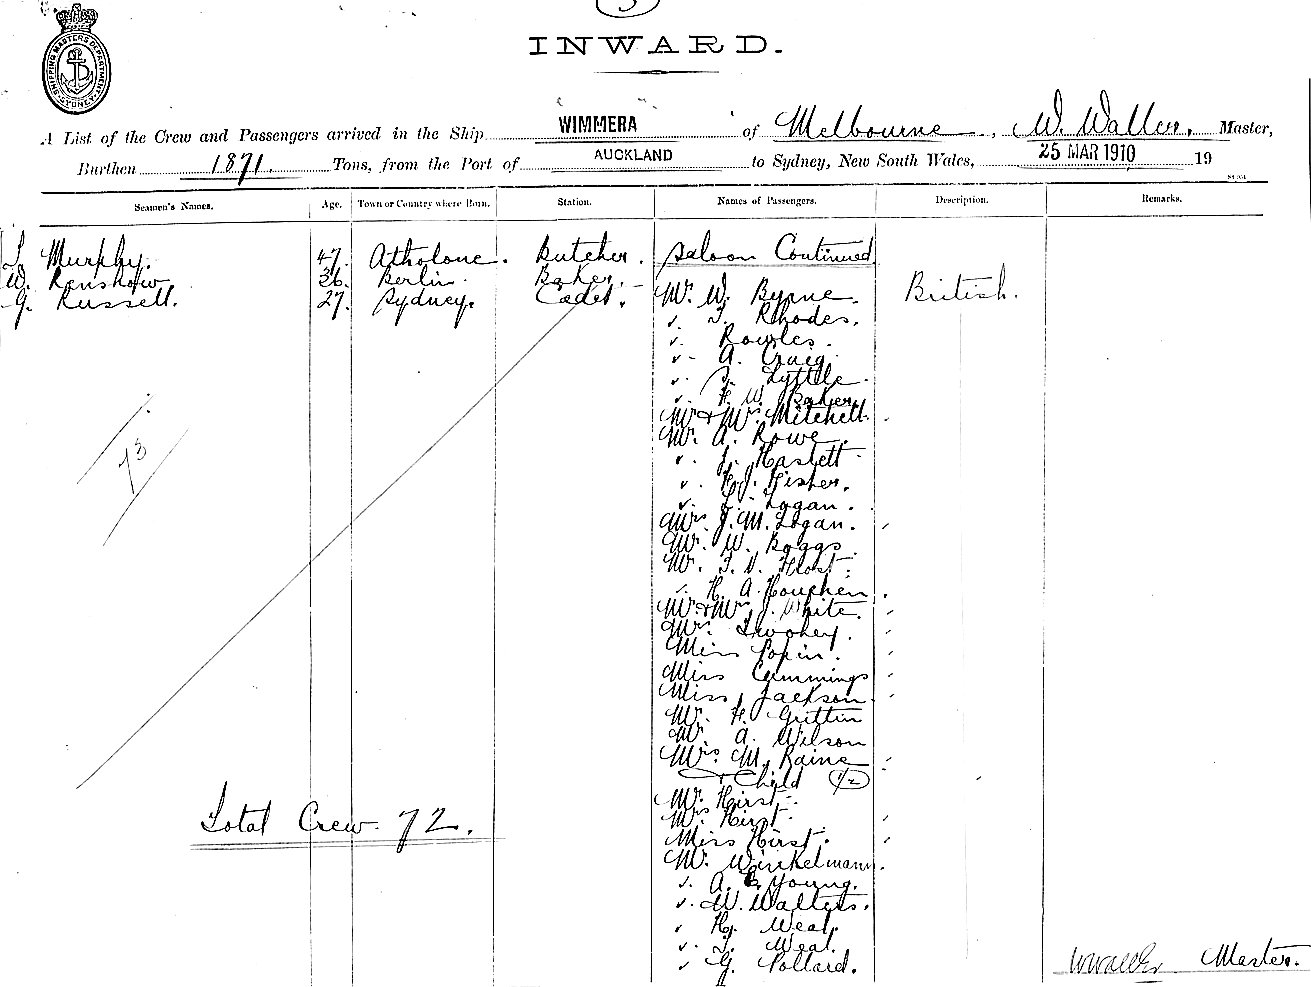 3
INWARD.
SHIPPING MASTERS DEPARTMENT SYDNEY
A List of the Crew and Passengers arrived in the Ship WIMMERA of Melbourne, W. Waller, Master,
Burthen 1871 Tons, from the Port of AUCKLAND to Sydney, New South Wales, 25 MAR 1910 19
Seamen's Names. Age. Town or Country where Born. Station. Names of Passengers. Description. Remarks.
Murphy. 47. Athlone. Butcher. Saloon Continued
W. Renshaw 36. Berlin. Baker.
G. Russell. 27. Sydney. Cadet. Mr. W. Byrne. British.
Rhodes.
Rowles.
A. Craig.
Lyttle.
H. W. Baker
Mr & Mrs Mitchell.
Mr. A. Rowe.
J. Haslett
H. J. Fisher.
Logan.
Mrs J. M. Logan.
Mr. W. Boggs.
Mr. Frost.
H. A. Houchen.
Mr & Mrs J. White.
Mr. Twohey.
Miss Popin.
Miss Cummings
Miss Jackson
Mr. H. Griffin
Mr. A. Wilson
Mrs M. Raine
& Child (1/2)
Mr. Hirst.
Mrs Hirst.
Miss Hirst.
Mr. Winkelmann.
A. E. Young.
W. Walters.
Hy. Weal.
Weal.
G. Pollard.
73
Total Crew 72.
W Waller Master.